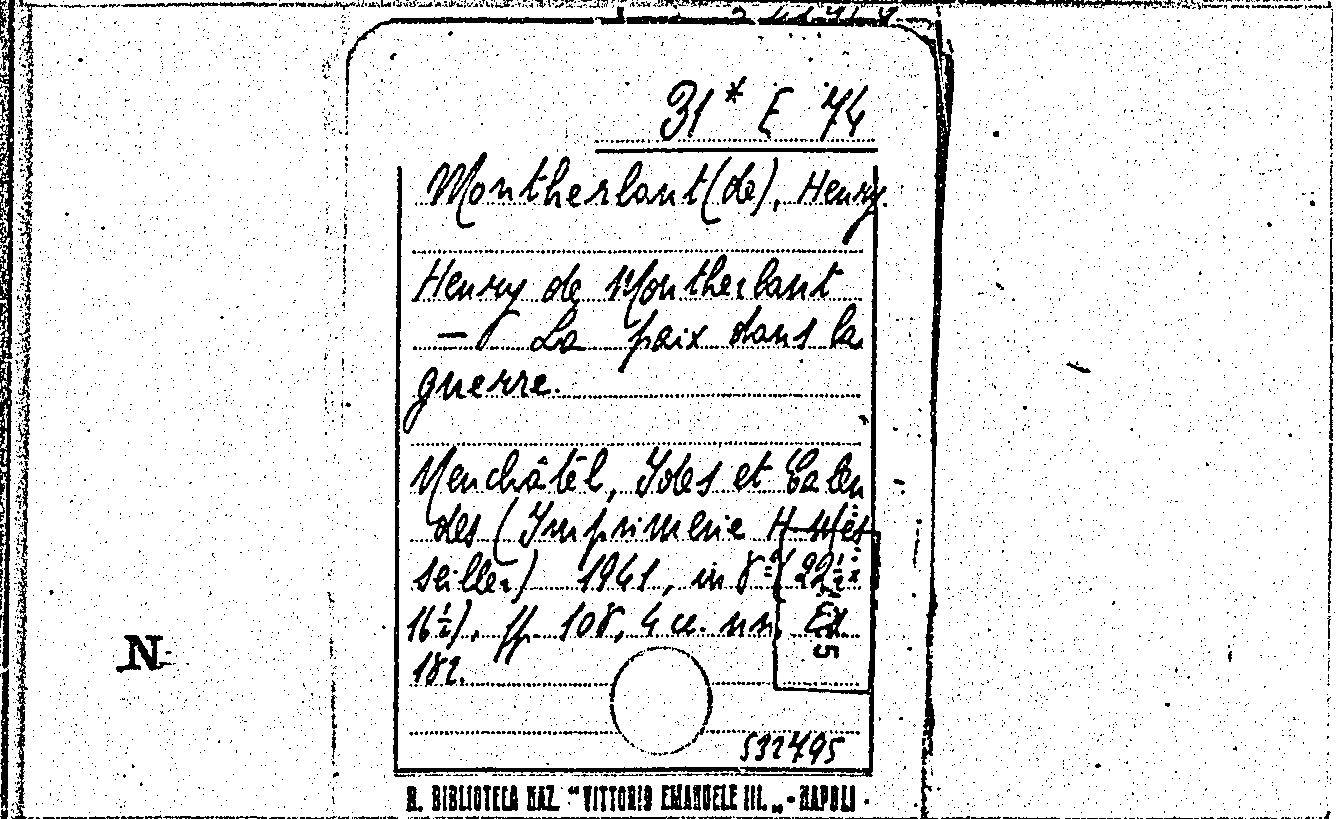 31* E 74
Montherlant (de), Henry.
Henry de Montherlant
— La paix dans la
guerre.
Neuchâtêl, Ides et Calen
des (Imprimerie H.
seiller) 1941, in 8° (22½ x
16½), pp. 108, 4 cc. nn. Es.
182.
532495
N
R. BIBLIOTECA NAZ. "VITTORIO EMANUELE III." - NAPOLI